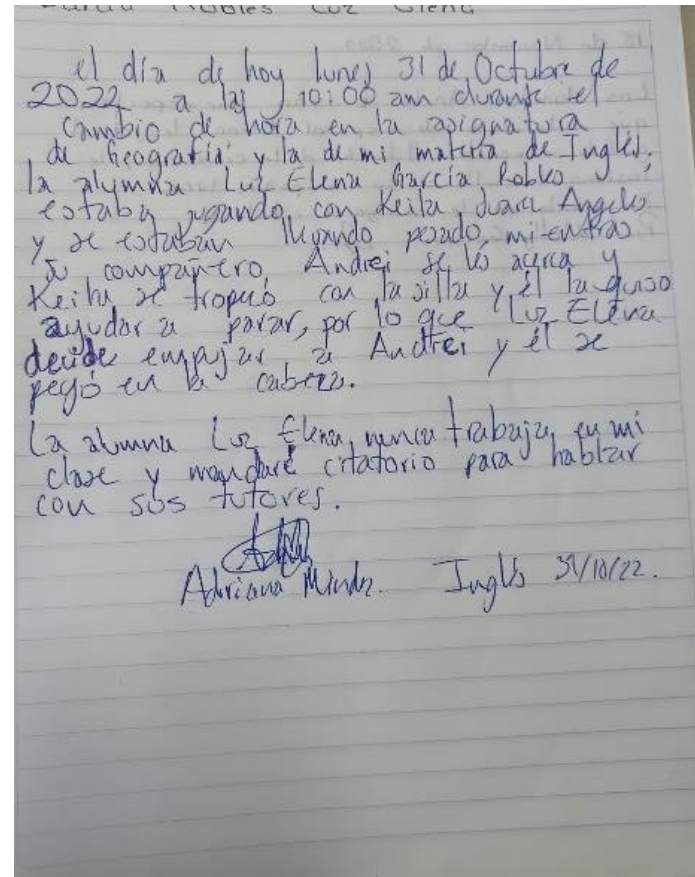 García Robles Luz Elena
el día de hoy lunes 31 de Octubre de
2022 a las 10:00 am durante el
cambio de hora en la asignatura
de Geografía y la de mi materia de Inglés,
la alumna Luz Elena García Robles
estaba jugando con Keila
y se estaban llevando pesado, mientras
su compañero Andrei se les acerca y
Keila se tropezó con la silla y él la quiso
ayudar a parar, por lo que Luz Elena
decide empujar a Andrei y él se
pegó en la cabeza.
La alumna Luz Elena nunca trabaja en mi
clase y mandaré citatorio para hablar
con sus tutores.
Adriana Inglés 31/10/22.